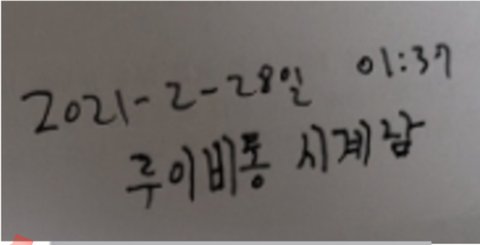 2021-2-28일 01:37
루이비통 시계남